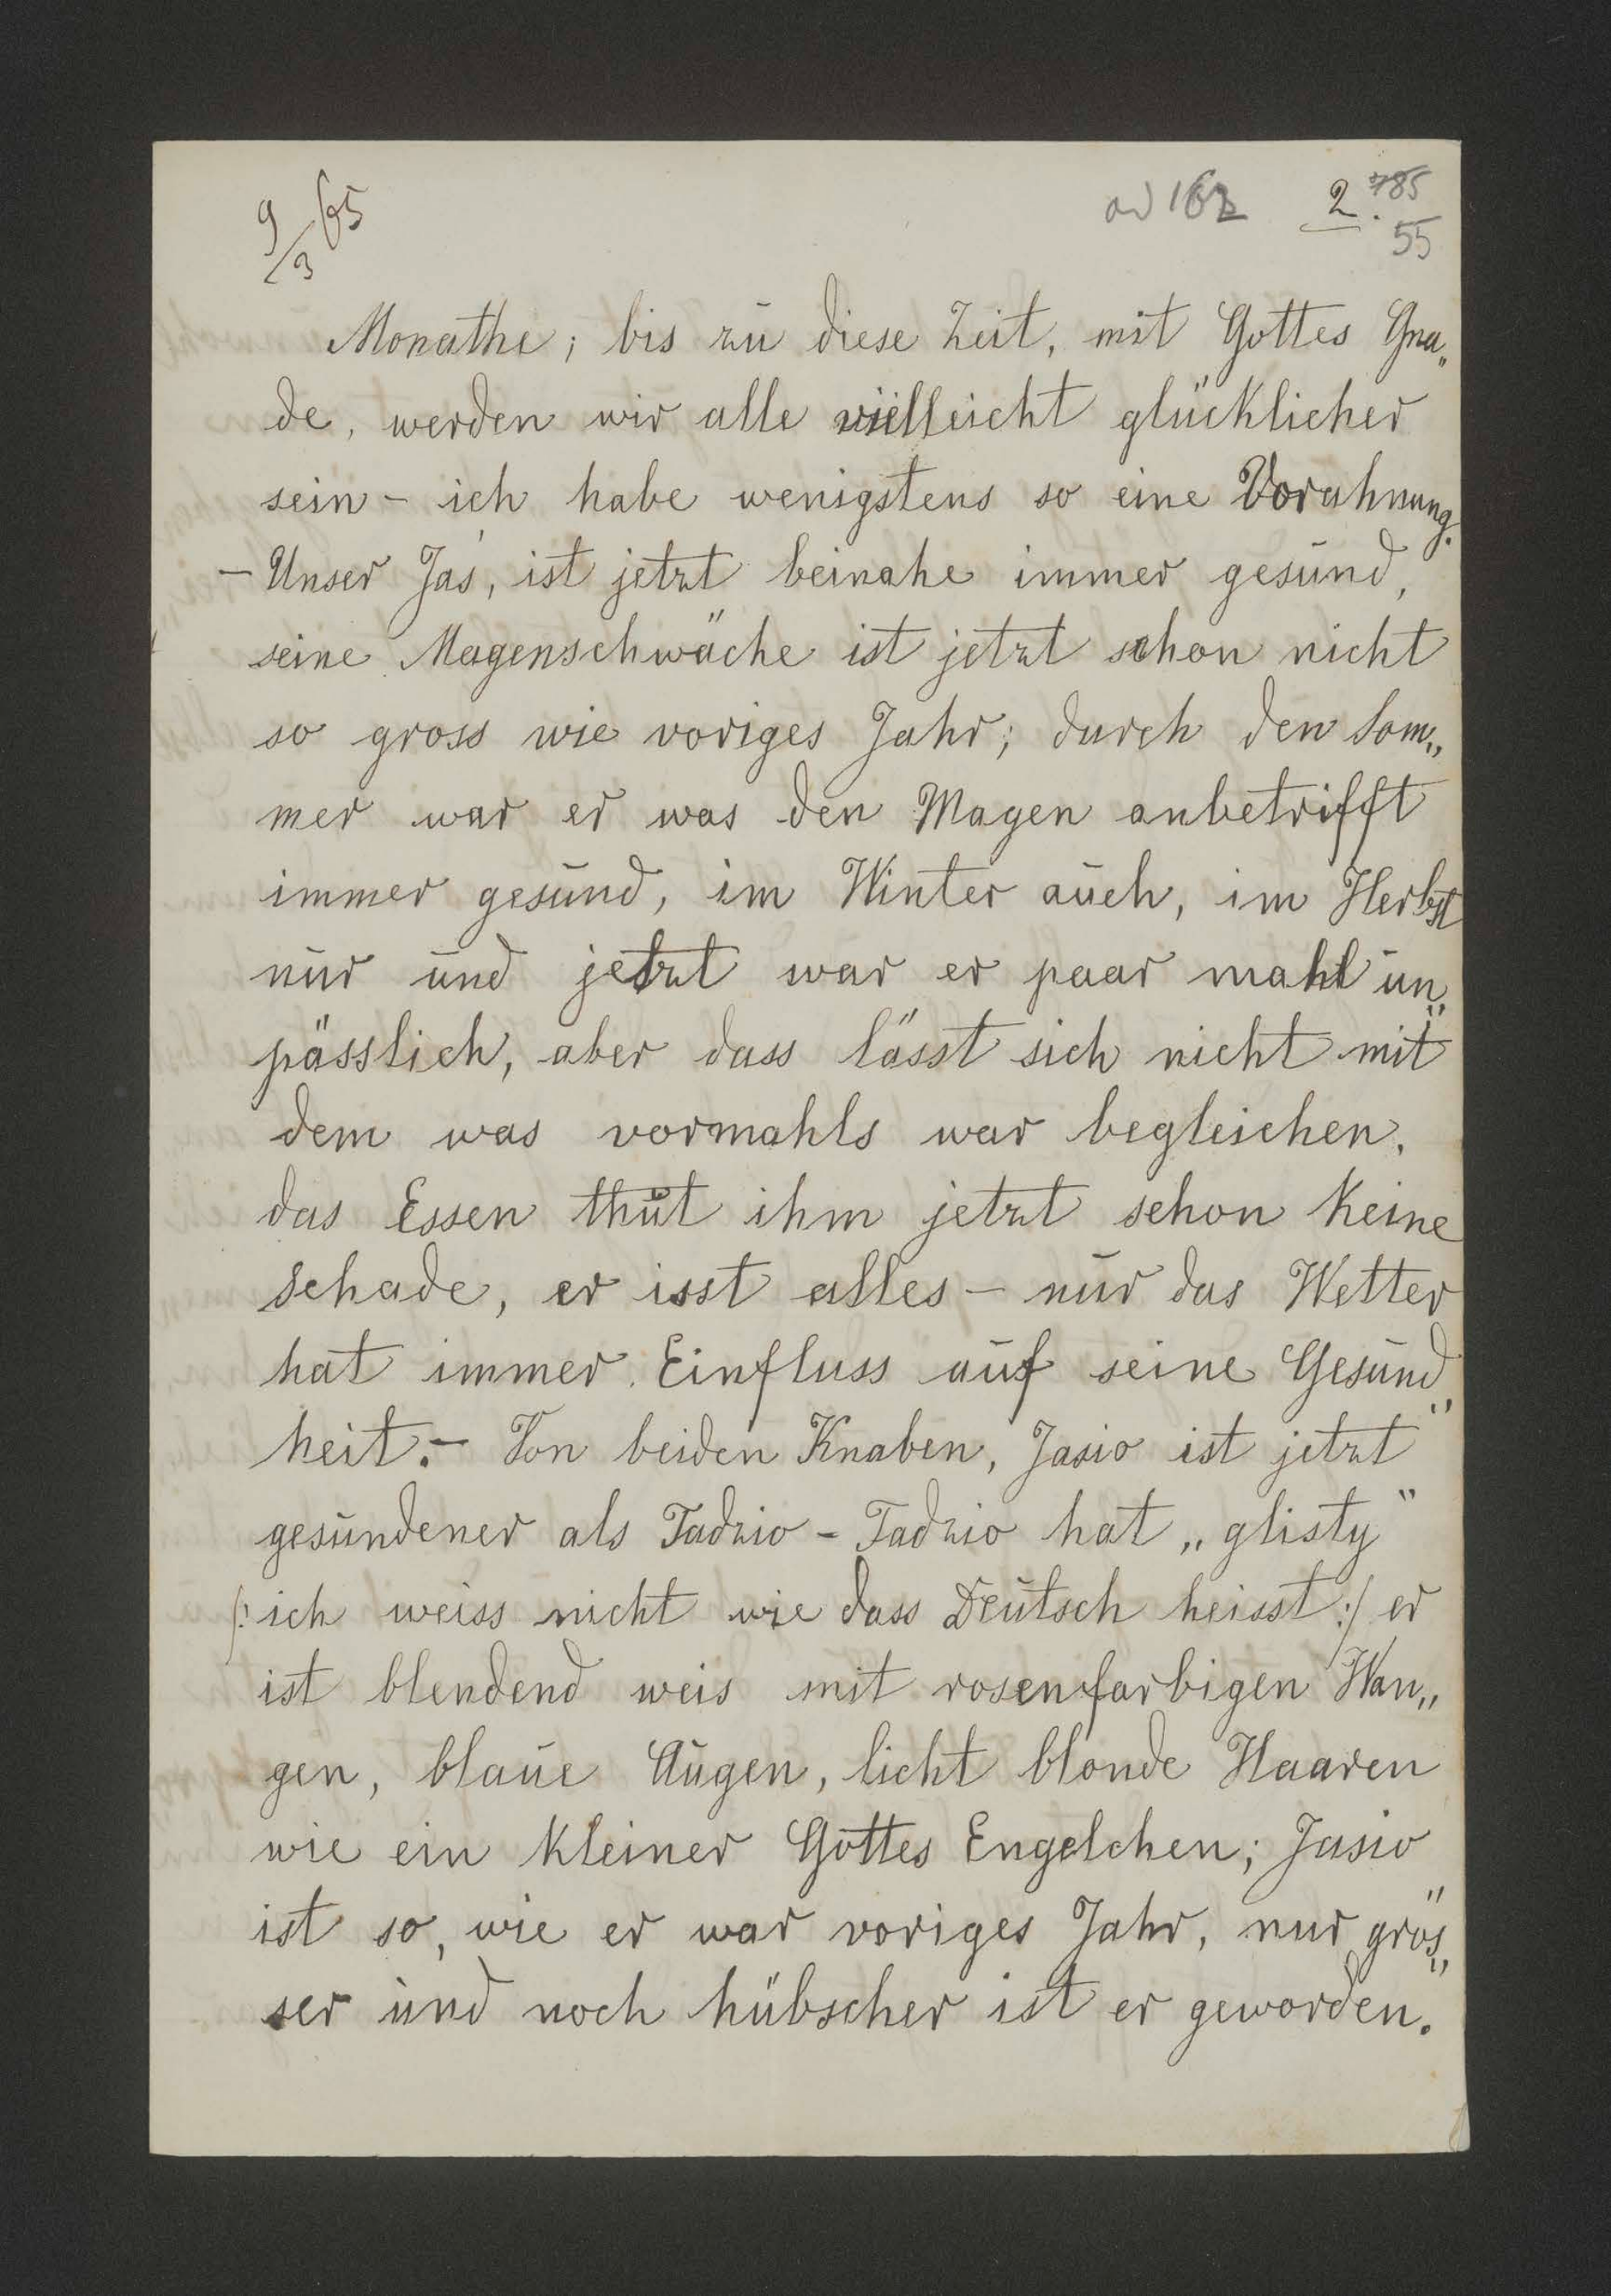 9/3 65
ad 162 2. 785
55
Monathe; bis zu diese Zeit, mit Gottes Gna„
de, werden wir alle vielleicht glücklicher
sein – ich habe wenigstens so eine Vorahnung.
– Unser Jaś, ist jetzt beinahe immer gesund,
seine Magenschwäche ist jetzt schon nicht
so gross wie voriges Jahr; durch den Som„
mer war er was den Magen anbetrifft
immer gesund, im Winter auch, im Herbst
nur und jetzt war er paar mahl un„
pässlich, aber dass lässt sich nicht mit
dem was vormahls war begleichen.
das Essen thut ihm jetzt schon keine
schade, er isst alles – nur das Wetter
hat immer Einfluss auf seine Gesund„
heit. – Von beiden Knaben, Jasio ist jetzt
gesundener als Tadzio – Tadzio hat „glisty“
/: ich weiss nicht wie dass Deutsch heisst :/ er
ist blendend weis mit rosenfarbigen Wan„
gen, blaue Augen, licht blonde Haaren
wie ein kleiner Gottes Engelchen; Jasio
ist so, wie er war voriges Jahr, nur grös„
ser und noch hübscher ist er geworden.